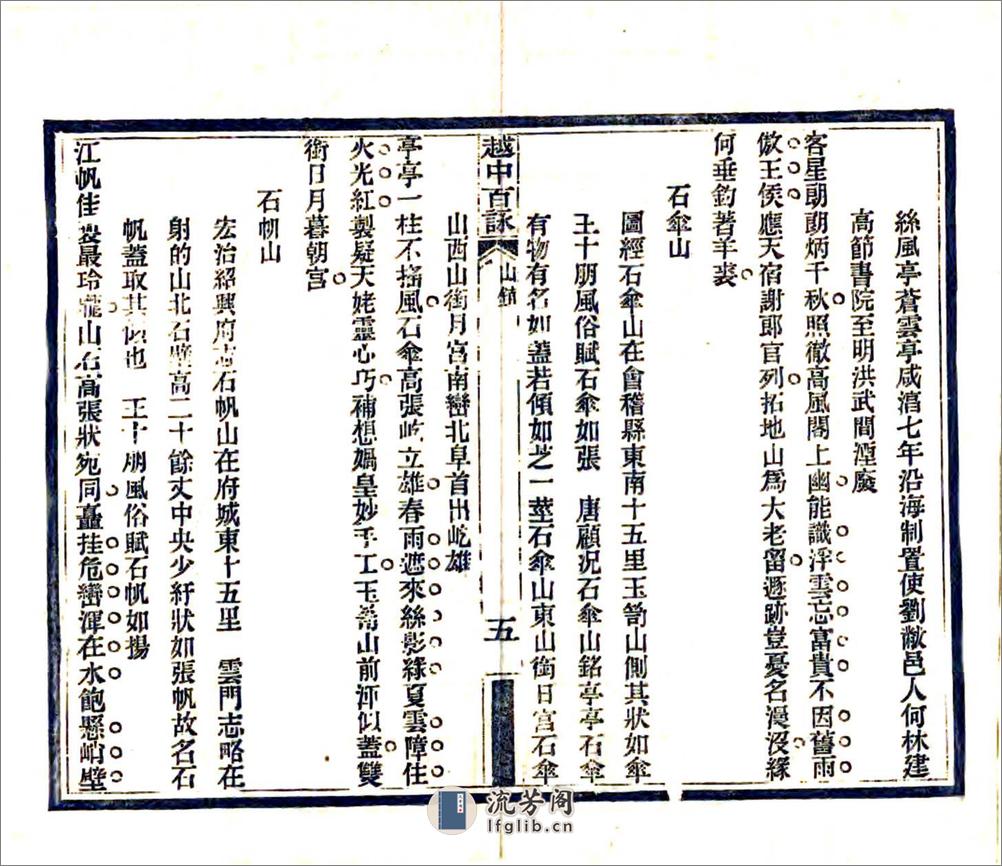 絲風亭蒼雲亭咸淳七年沿海制置使劉黻邑人何林建
高節書院至明洪武間湮廢
客星朝朝炳千秋照徹高風閣上幽能識浮雲忘富貴不因舊雨
傲王侯應天宿謝郎官列拓地山為大老留遯跡豈憂名漫沒緣
何垂釣著羊裘
石傘山
圖經石傘山在會稽縣東南十五里玉笥山側其狀如傘
王十朋風俗賦石傘如張　唐顧況石傘山銘亭亭石傘
有物有名如蓋若傾如芝一莖石傘山東山銜日宮石傘
越中百詠
山鎮
五
山西山銜月宮南巒北阜首出屹雄
亭亭一柱不搖風石傘高張屹立雄春雨遮來絲影綠夏雲障住
火光紅製疑天姥靈心巧補想媧皇妙手工玉笥山前渾似蓋雙
銜日月暮朝宮
石帆山
宏治紹興府志石帆山在府城東十五里　雲門志略在
射的山北石壁高二十餘丈中央少紆狀如張帆故名石
帆蓋取其似也　王十朋風俗賦石帆如揚
江帆佳製最玲瓏山石高張狀宛同矗挂危巒渾在水飽懸峭壁
流芳阁
lfglib.cn